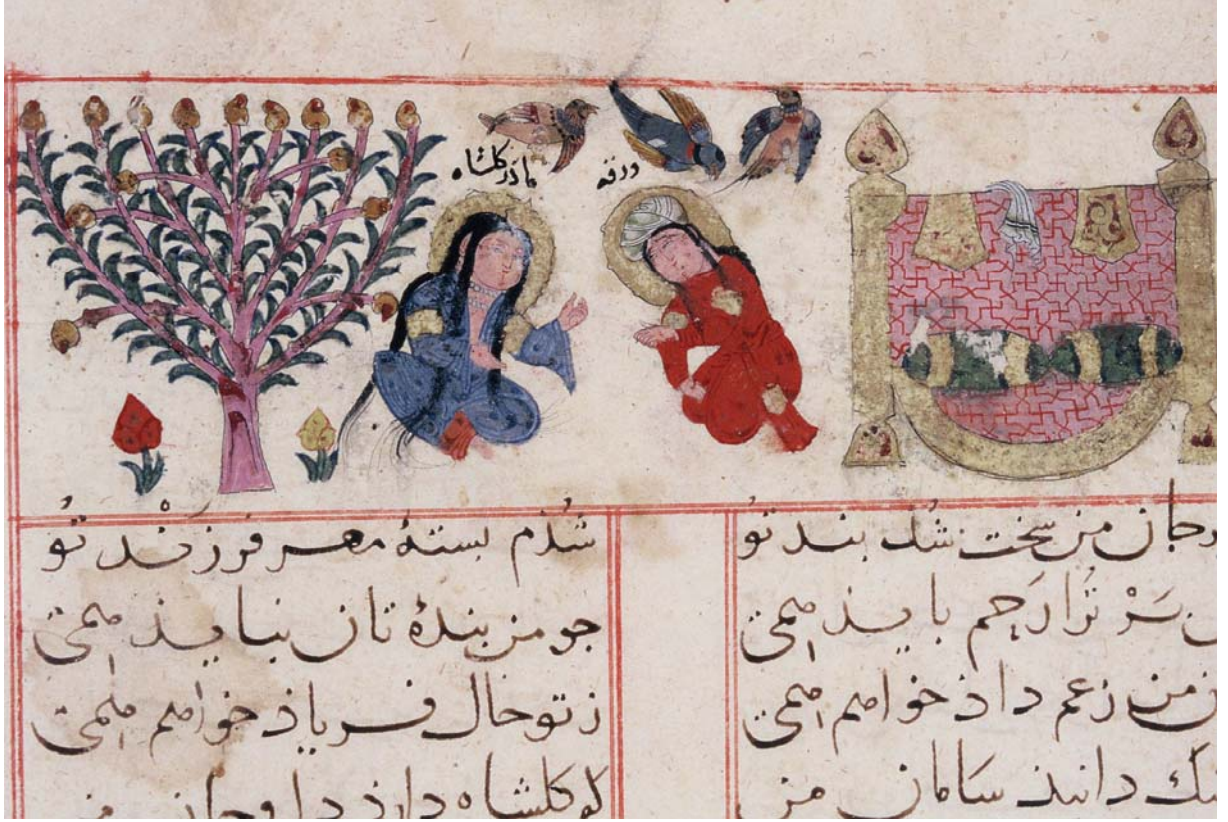 ماذر کلشاه
ورقه
جان من سخت شذ بند تو شُذم بستهٔ مهر فرزند تو
سَرْ تُرا رَحم بایذ همی جو من بندهٔ تان نبایذ همی
من زعم داذ خواهم همی ز تو حال فریاذ خواهم همی
دانند سامان من کو کلشاه دارذ دل و جان من